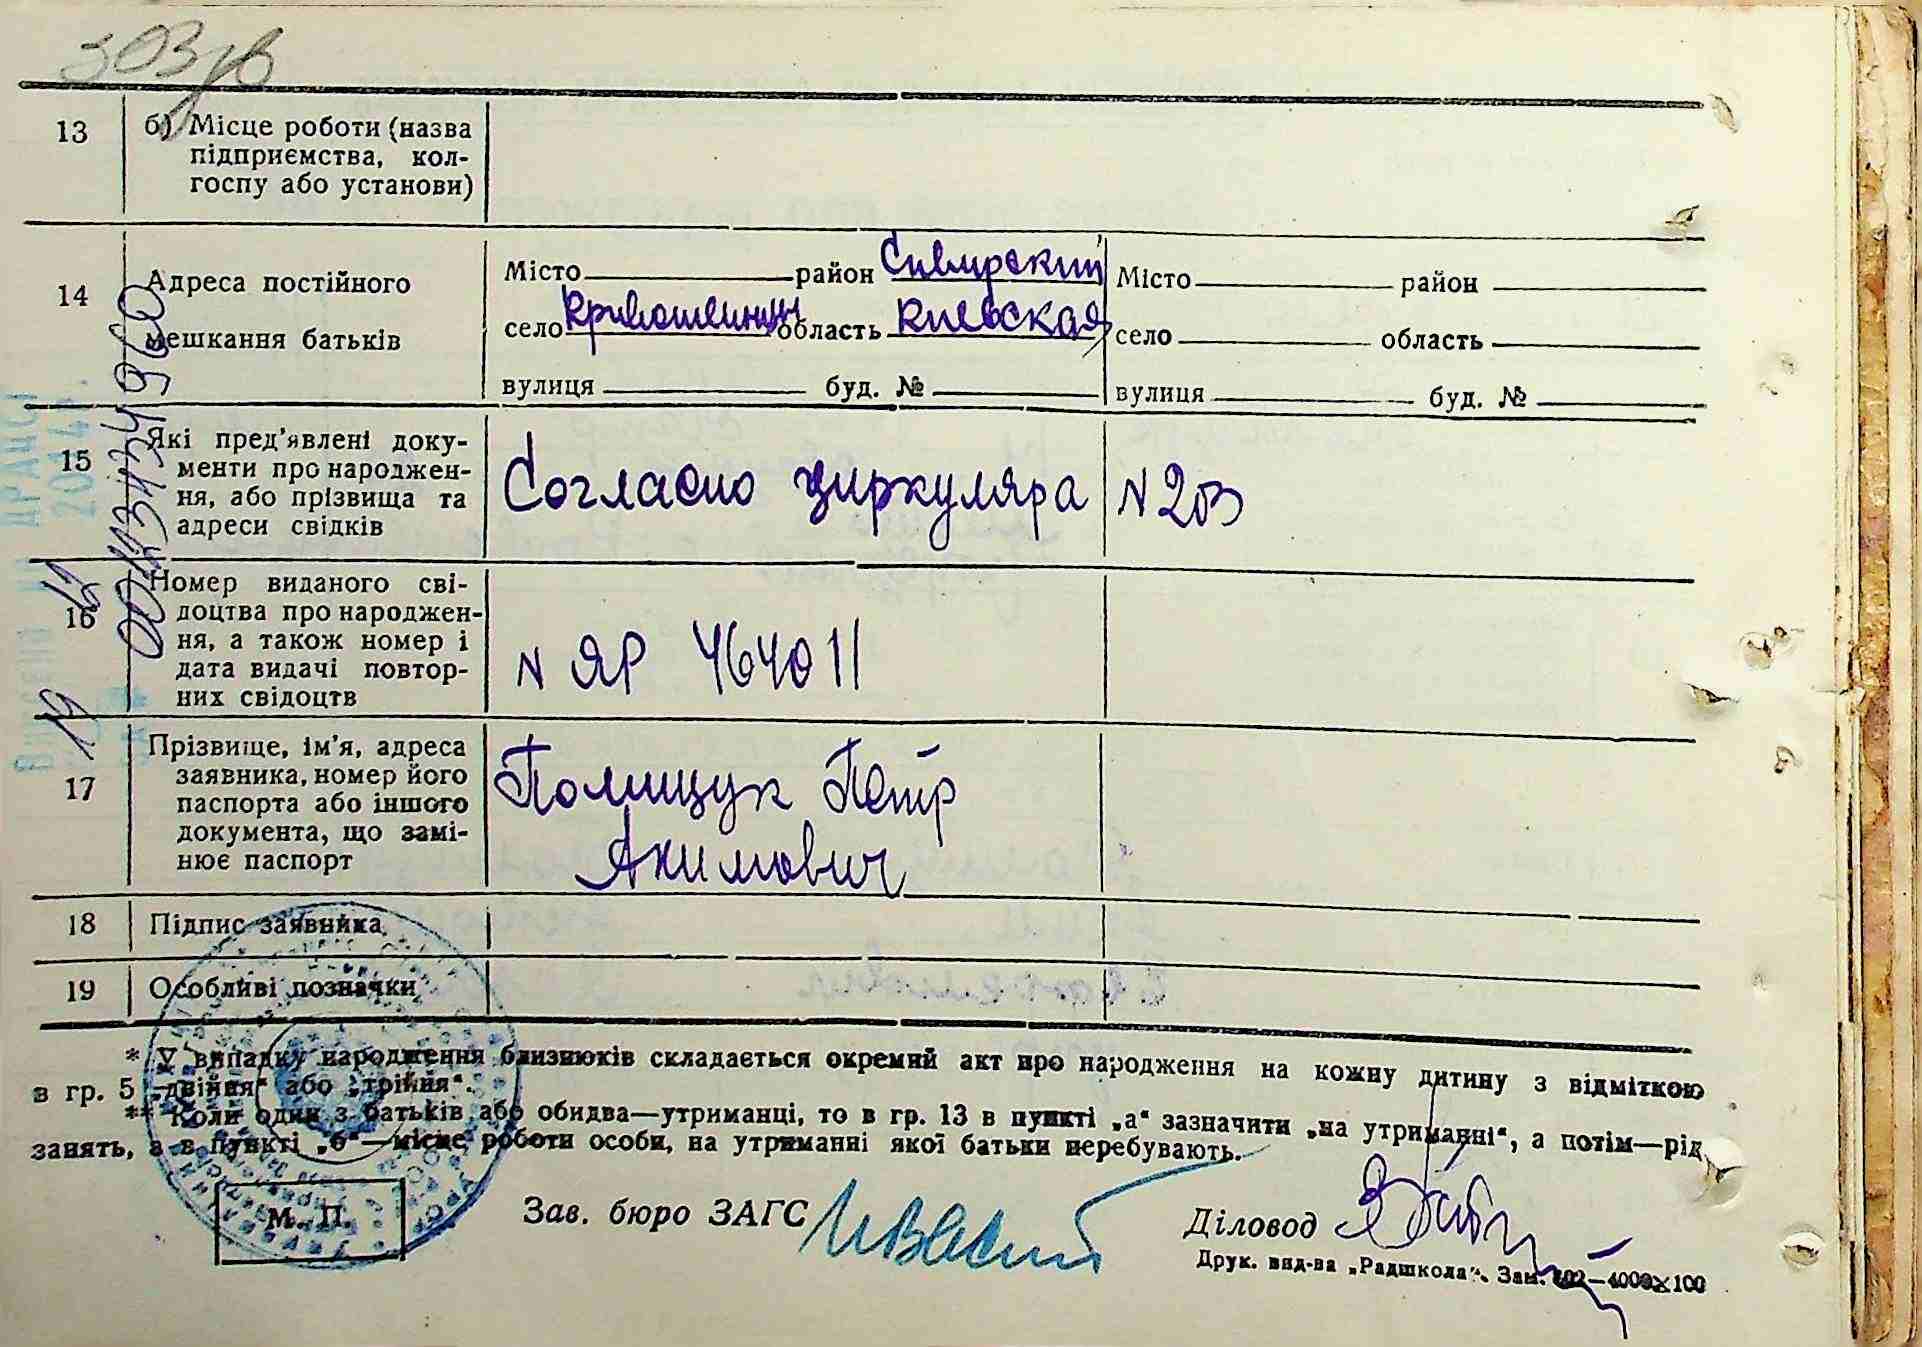 13
б) Місце роботи (назва
підприємства, кол-
госпу або установи)
14
Адреса постійного
мешкання батьків
Місто район Сквирский
село Кривошеинцы область Киевская
вулиця буд. №
Місто район
село область
вулиця буд. №
15
Які пред'явлені доку-
менти про народжен-
ня, або прізвища та
адреси свідків
Согласно циркуляра N 203
16
Номер виданого сві-
доцтва про народжен-
ня, а також номер і
дата видачі повтор-
них свідоцтв
N ЯР 464011
17
Прізвище, ім'я, адреса
заявника, номер його
паспорта або іншого
документа, що замі-
нює паспорт
Полищук Петр
Акимович
18
Підпис заявника
19
Особливі позначки
* У випадку народження близнюків складається окремий акт про народження на кожну дитину з відміткою
в гр. 5 „двійня“ або „трійня“.
** Коли один з батьків або обидва—утриманці, то в гр. 13 в пункті „а“ зазначити „на утриманні“, а потім—рід
занять, а в пункті „б“—місце роботи особи, на утриманні якої батьки перебувають.
М. П.
Зав. бюро ЗАГС
Діловод
Друк. вид-ва „Радшкола“. Зам. 402—4000×100